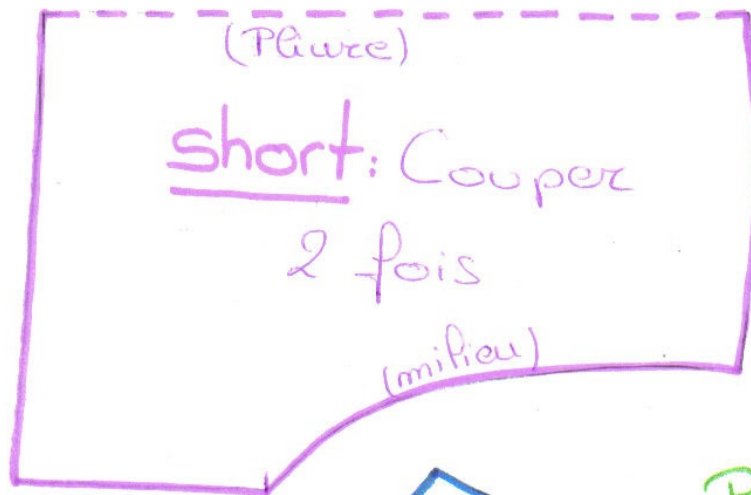 (Pliure)
short: Couper
2 fois
(milieu)